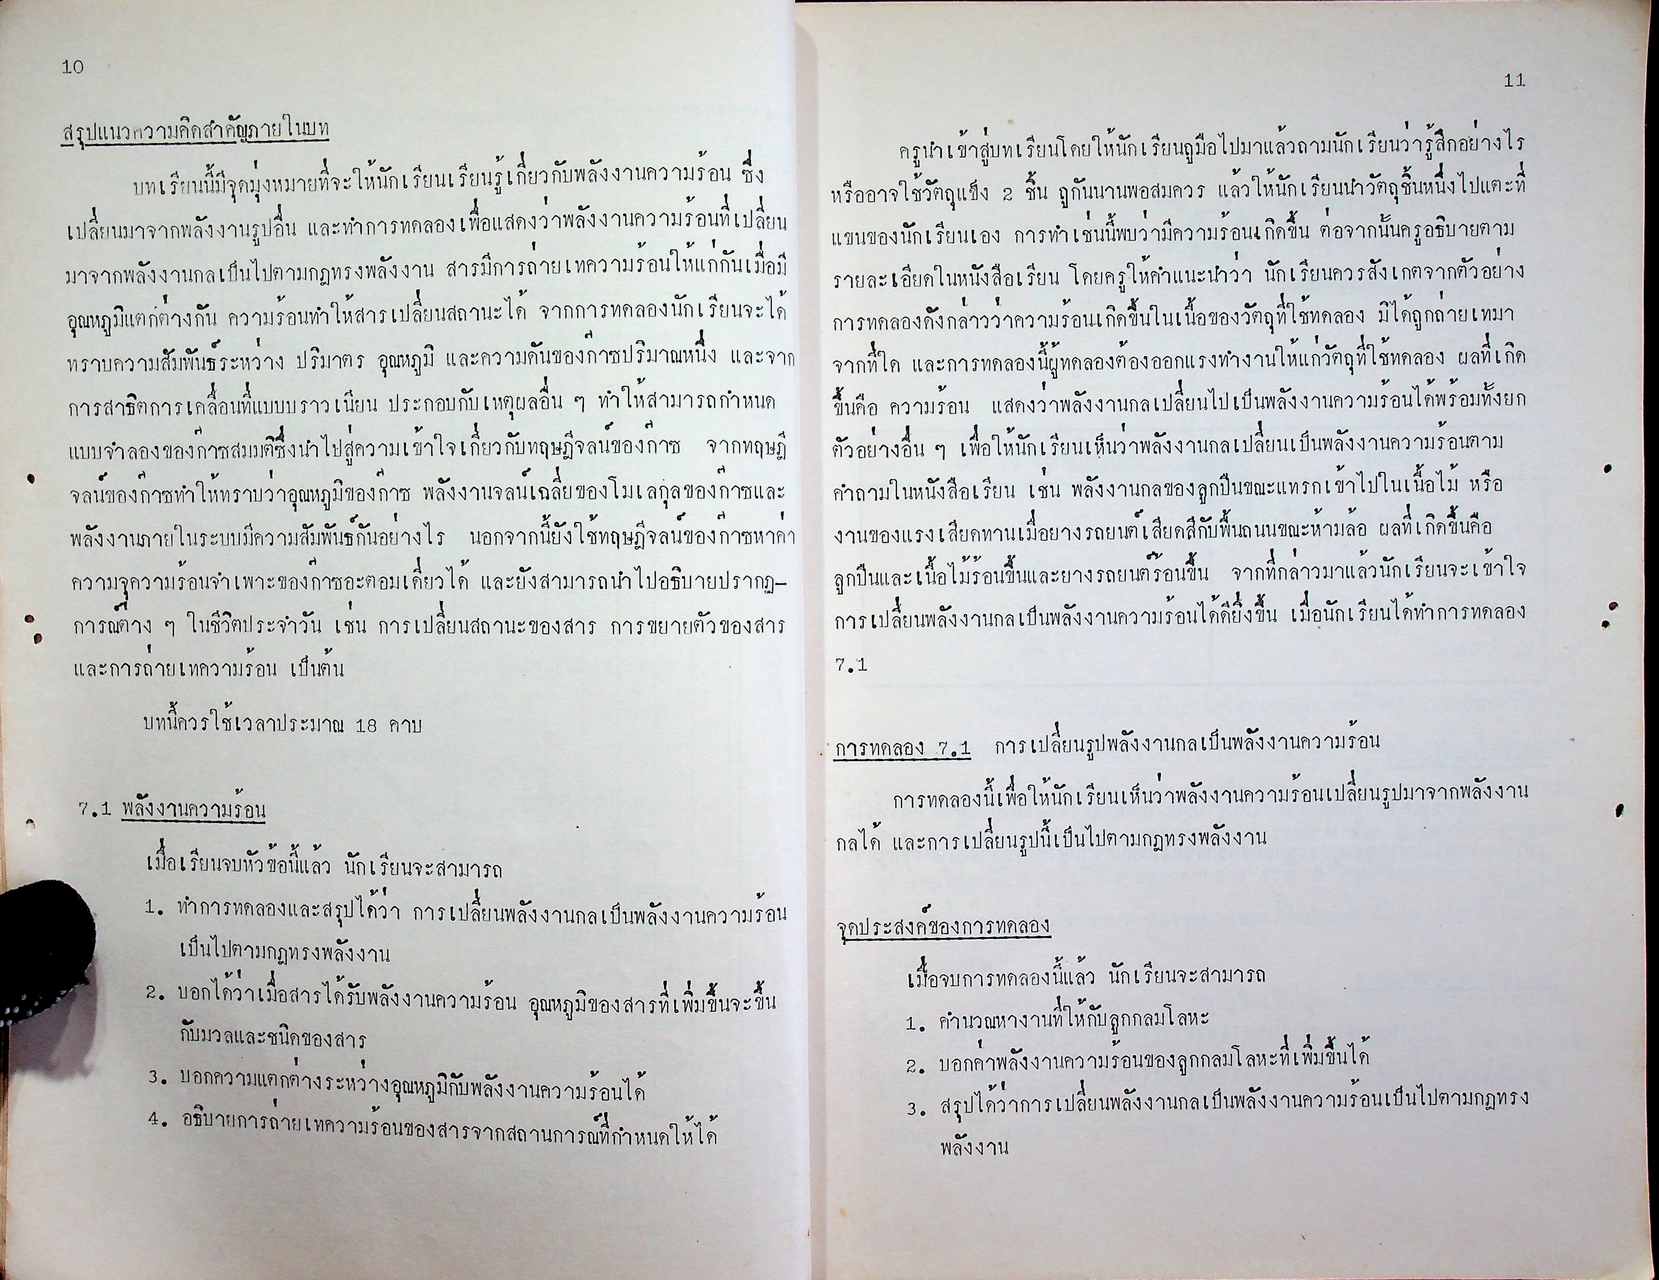 10
สรุปแนวความคิดสำคัญภายในบท
บทเรียนนี้มีจุดมุ่งหมายที่จะให้นักเรียนเรียนรู้เกี่ยวกับพลังงานความร้อน ซึ่ง
เปลี่ยนมาจากพลังงานรูปอื่น และทำการทดลองเพื่อแสดงว่าพลังงานความร้อนที่เปลี่ยน
มาจากพลังงานกลเป็นไปตามกฎทรงพลังงาน สารมีการถ่ายเทความร้อนให้แก่กันเมื่อมี
อุณหภูมิแตกต่างกัน ความร้อนทำให้สารเปลี่ยนสถานะได้ จากการทดลองนักเรียนจะได้
ทราบความสัมพันธ์ระหว่าง ปริมาตร อุณหภูมิ และความดันของก๊าซปริมาณหนึ่ง และจาก
การสาธิตการเคลื่อนที่แบบบราวเนียน ประกอบกับเหตุผลอื่น ๆ ทำให้สามารถกำหนด
แบบจำลองของก๊าซสมมติซึ่งนำไปสู่ความเข้าใจเกี่ยวกับทฤษฎีจลน์ของก๊าซ จากทฤษฎี
จลน์ของก๊าซทำให้ทราบว่าอุณหภูมิของก๊าซ พลังงานจลน์เฉลี่ยของโมเลกุลของก๊าซและ
พลังงานภายในระบบมีความสัมพันธ์กันอย่างไร นอกจากนี้ยังใช้ทฤษฎีจลน์ของก๊าซหาค่า
ความจุความร้อนจำเพาะของก๊าซอะตอมเดี่ยวได้ และยังสามารถนำไปอธิบายปรากฏ-
การณ์ต่าง ๆ ในชีวิตประจำวัน เช่น การเปลี่ยนสถานะของสาร การขยายตัวของสาร
และการถ่ายเทความร้อน เป็นต้น
บทนี้ควรใช้เวลาประมาณ 18 คาบ
7.1 พลังงานความร้อน
เมื่อเรียนจบหัวข้อนี้แล้ว นักเรียนจะสามารถ
1. ทำการทดลองและสรุปได้ว่า การเปลี่ยนพลังงานกลเป็นพลังงานความร้อน
เป็นไปตามกฎทรงพลังงาน
2. บอกได้ว่าเมื่อสารได้รับพลังงานความร้อน อุณหภูมิของสารที่เพิ่มขึ้นจะขึ้น
กับมวลและชนิดของสาร
3. บอกความแตกต่างระหว่างอุณหภูมิกับพลังงานความร้อนได้
4. อธิบายการถ่ายเทความร้อนของสารจากสถานการณ์ที่กำหนดให้ได้
11
ครูนำเข้าสู่บทเรียนโดยให้นักเรียนถูมือไปมาแล้วถามนักเรียนว่ารู้สึกอย่างไร
หรืออาจใช้วัตถุแข็ง 2 ชิ้น ถูกันนานพอสมควร แล้วให้นักเรียนนำวัตถุชิ้นหนึ่งไปแตะที่
แขนของนักเรียนเอง การทำเช่นนี้พบว่ามีความร้อนเกิดขึ้น ต่อจากนั้นครูอธิบายตาม
รายละเอียดในหนังสือเรียน โดยครูให้คำแนะนำว่า นักเรียนควรสังเกตจากตัวอย่าง
การทดลองดังกล่าวว่าความร้อนเกิดขึ้นในเนื้อของวัตถุที่ใช้ทดลอง มิได้ถูกถ่ายเทมา
จากที่ใด และการทดลองนี้ผู้ทดลองต้องออกแรงทำงานให้แก่วัตถุที่ใช้ทดลอง ผลที่เกิด
ขึ้นคือ ความร้อน แสดงว่าพลังงานกลเปลี่ยนไปเป็นพลังงานความร้อนได้พร้อมทั้งยก
ตัวอย่างอื่น ๆ เพื่อให้นักเรียนเห็นว่าพลังงานกลเปลี่ยนเป็นพลังงานความร้อนตาม
คำถามในหนังสือเรียน เช่น พลังงานกลของลูกปืนขณะแทรกเข้าไปในเนื้อไม้ หรือ
งานของแรงเสียดทานเมื่อยางรถยนต์เสียดสีกับพื้นถนนขณะห้ามล้อ ผลที่เกิดขึ้นคือ
ลูกปืนและเนื้อไม้ร้อนขึ้นและยางรถยนต์ร้อนขึ้น จากที่กล่าวมาแล้วนักเรียนจะเข้าใจ
การเปลี่ยนพลังงานกลเป็นพลังงานความร้อนได้ดียิ่งขึ้น เมื่อนักเรียนได้ทำการทดลอง
7.1
การทดลอง 7.1 การเปลี่ยนรูปพลังงานกลเป็นพลังงานความร้อน
การทดลองนี้เพื่อให้นักเรียนเห็นว่าพลังงานความร้อนเปลี่ยนรูปมาจากพลังงาน
กลได้ และการเปลี่ยนรูปนี้เป็นไปตามกฎทรงพลังงาน
จุดประสงค์ของการทดลอง
เมื่อจบการทดลองนี้แล้ว นักเรียนจะสามารถ
1. คำนวณหางานที่ให้กับลูกกลมโลหะ
2. บอกค่าพลังงานความร้อนของลูกกลมโลหะที่เพิ่มขึ้นได้
3. สรุปได้ว่าการเปลี่ยนพลังงานกลเป็นพลังงานความร้อนเป็นไปตามกฎทรง
พลังงาน